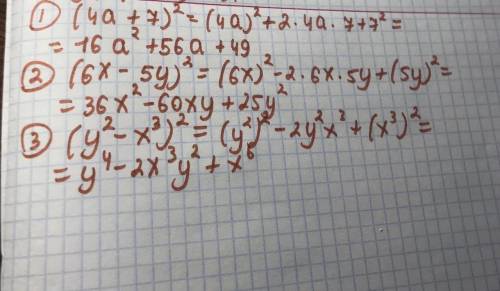 ① (4a + 7)² = (4a)² + 2 · 4a · 7 + 7² =
= 16a² + 56a + 49
② (6x - 5y)² = (6x)² - 2 · 6x · 5y + (5y)² =
= 36x² - 60xy + 25y²
③ (y² - x³)² = (y²)² - 2y²x³ + (x³)² =
= y⁴ - 2x³y² + x⁶